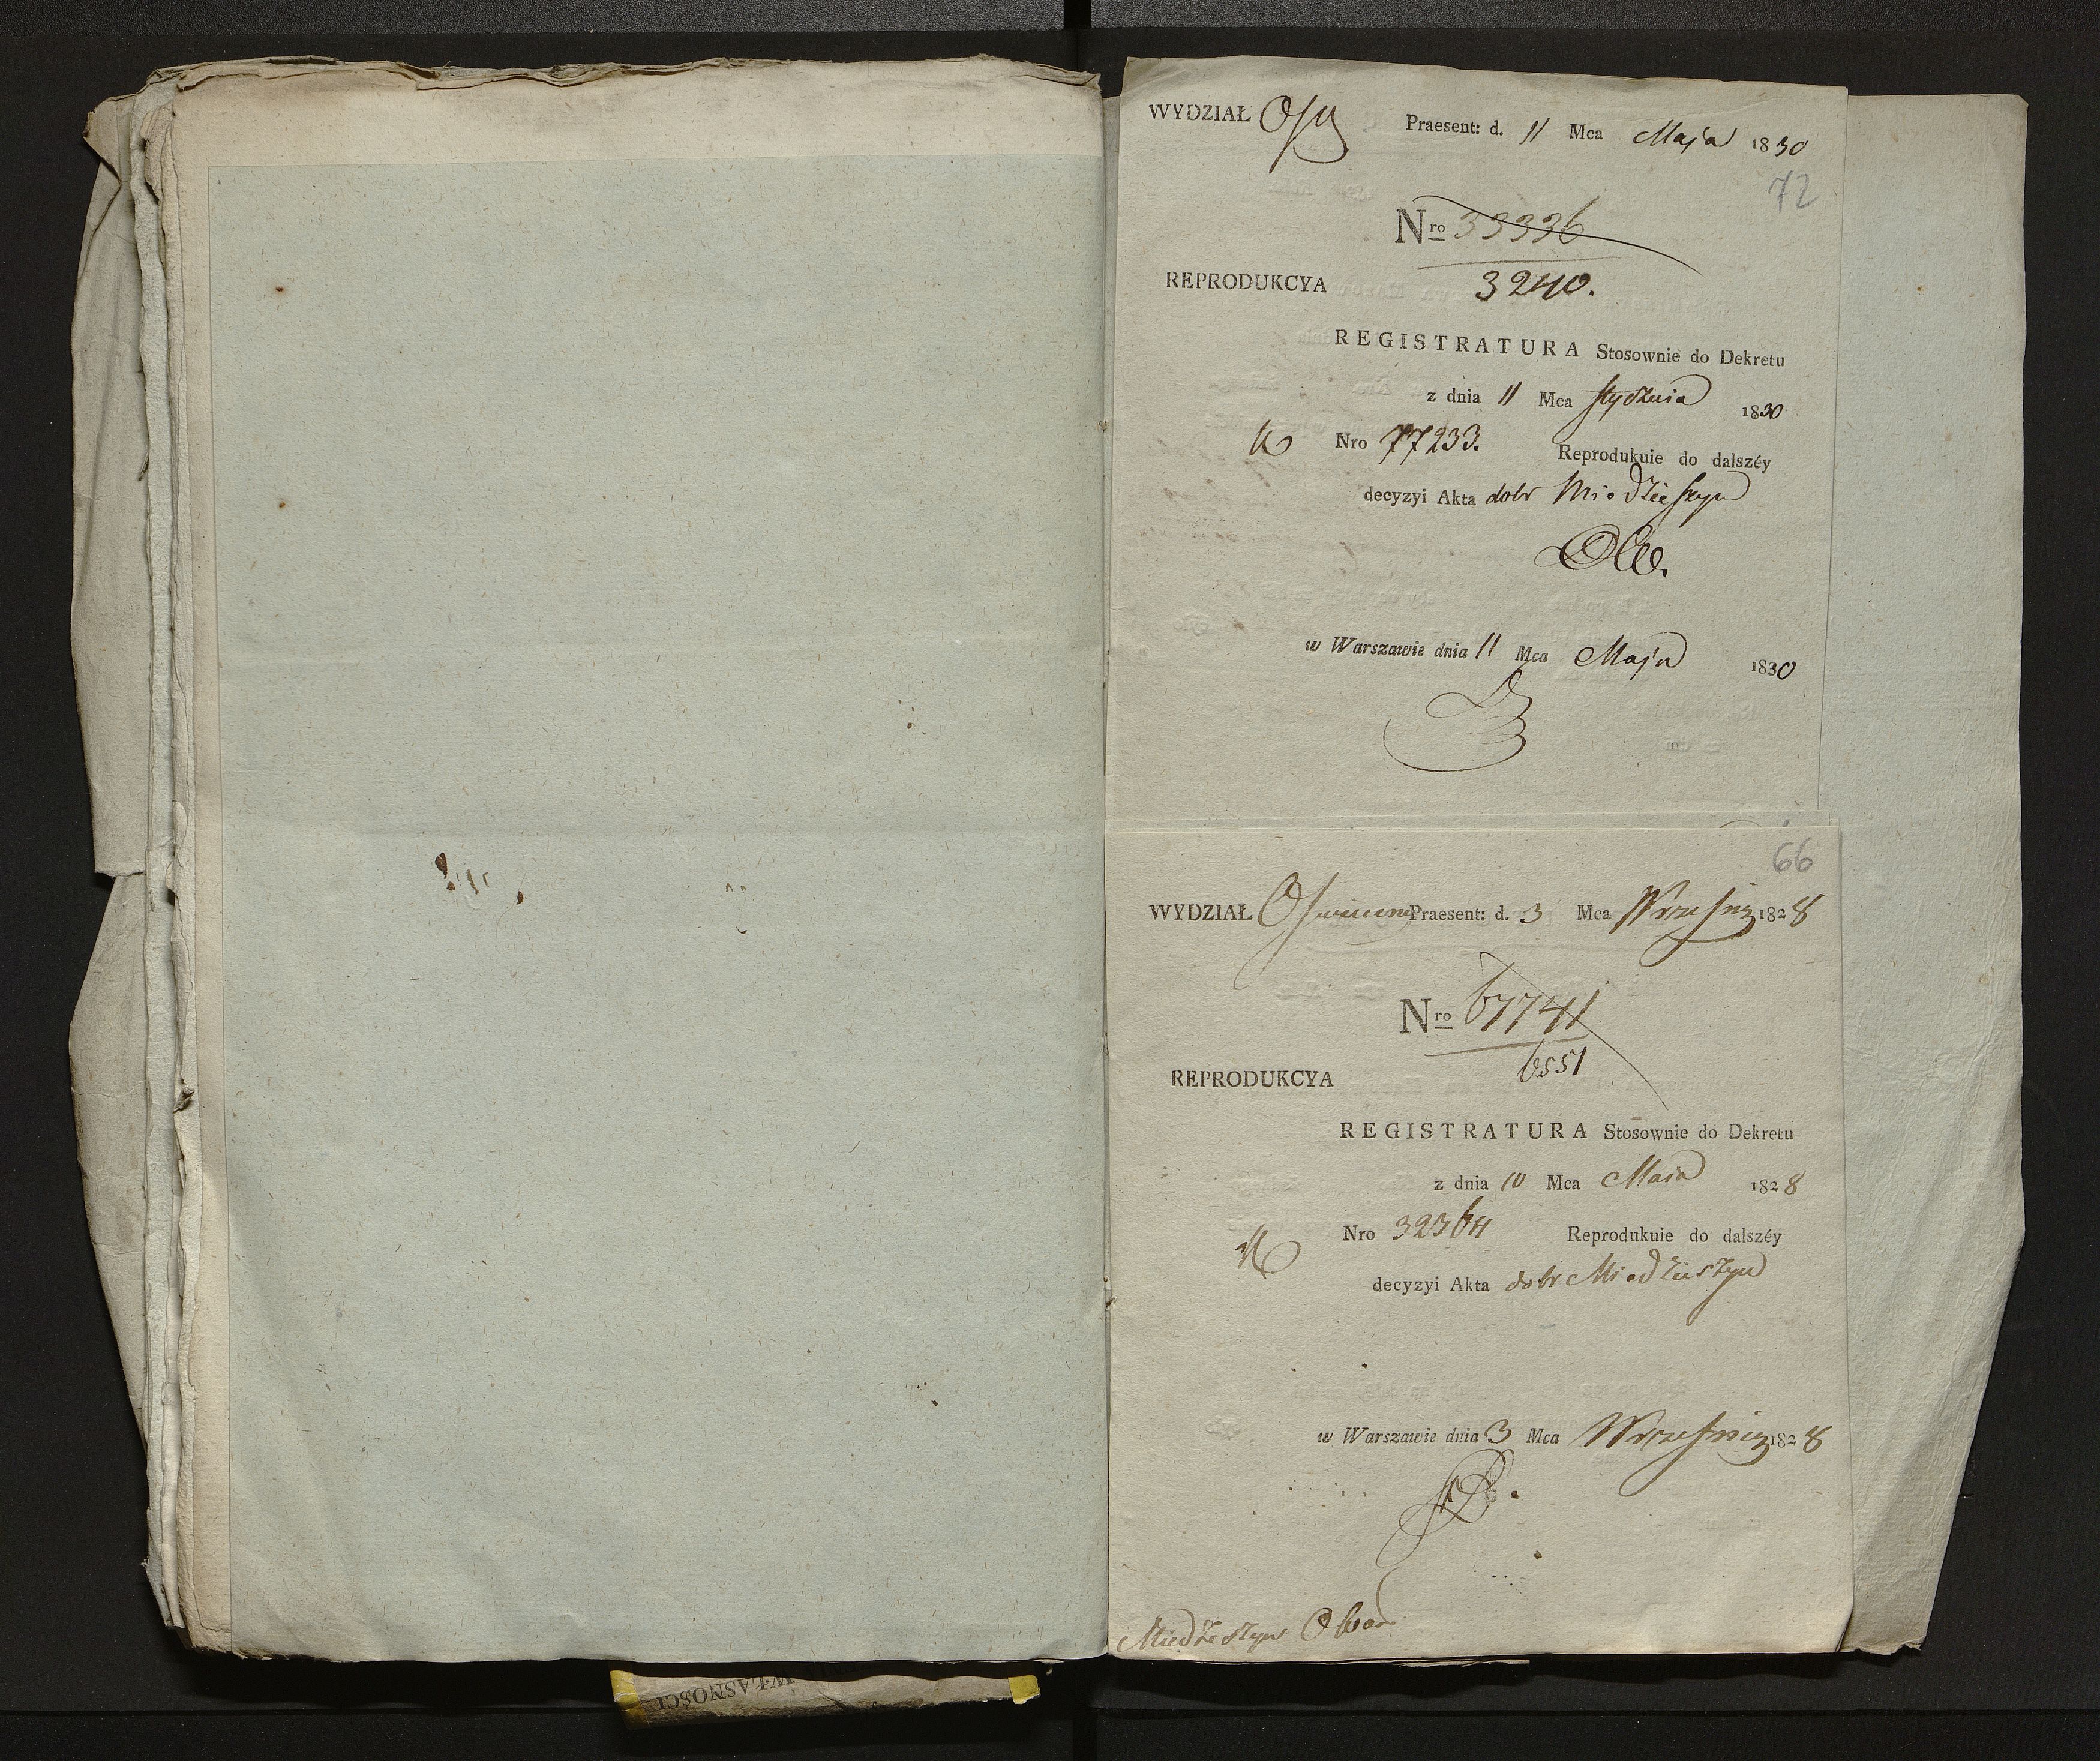 WYDZIAŁ Praesent: d. 11 Mca Maja 1830
72
Nro 33336
3240.
REPRODUKCYA
REGISTRATURA Stosownie do Dekretu
z dnia 11 Mca stycznia 1830
Nro 77233. Reprodukuie do dalszéy
decyzyi Akta dobr Miedzieszyn
w Warszawie dnia 11 Mca Maja 1830
66
WYDZIAŁ Praesent: d. 3 Mca Wrześnią 1828
Nro 67741
6551
REPRODUKCYA
REGISTRATURA Stosownie do Dekretu
z dnia 10 Mca Maia 1828
Nro 32364 Reprodukuie do dalszéy
decyzyi Akta dobr Miedzieszyn
w Warszawie dnia 3 Mca Wrześnią 1828
Miedzeszyn
WŁASNOŚCI